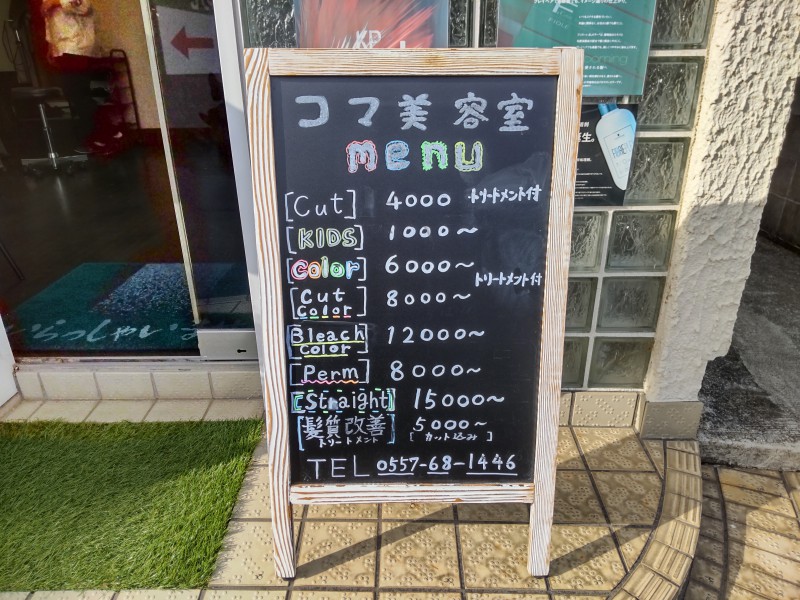 コマ美容室
menu
[Cut] 4000 トリートメント付
[KIDS] 1000～
[Color] 6000～
トリートメント付
[Cut Color] 8000～
[Bleach Color] 12000～
[Perm] 8000～
[Straight] 15000～
[髪質改善 トリートメント] 5000～
[カット込み]
TEL 0557-68-1446
いらっしゃいま